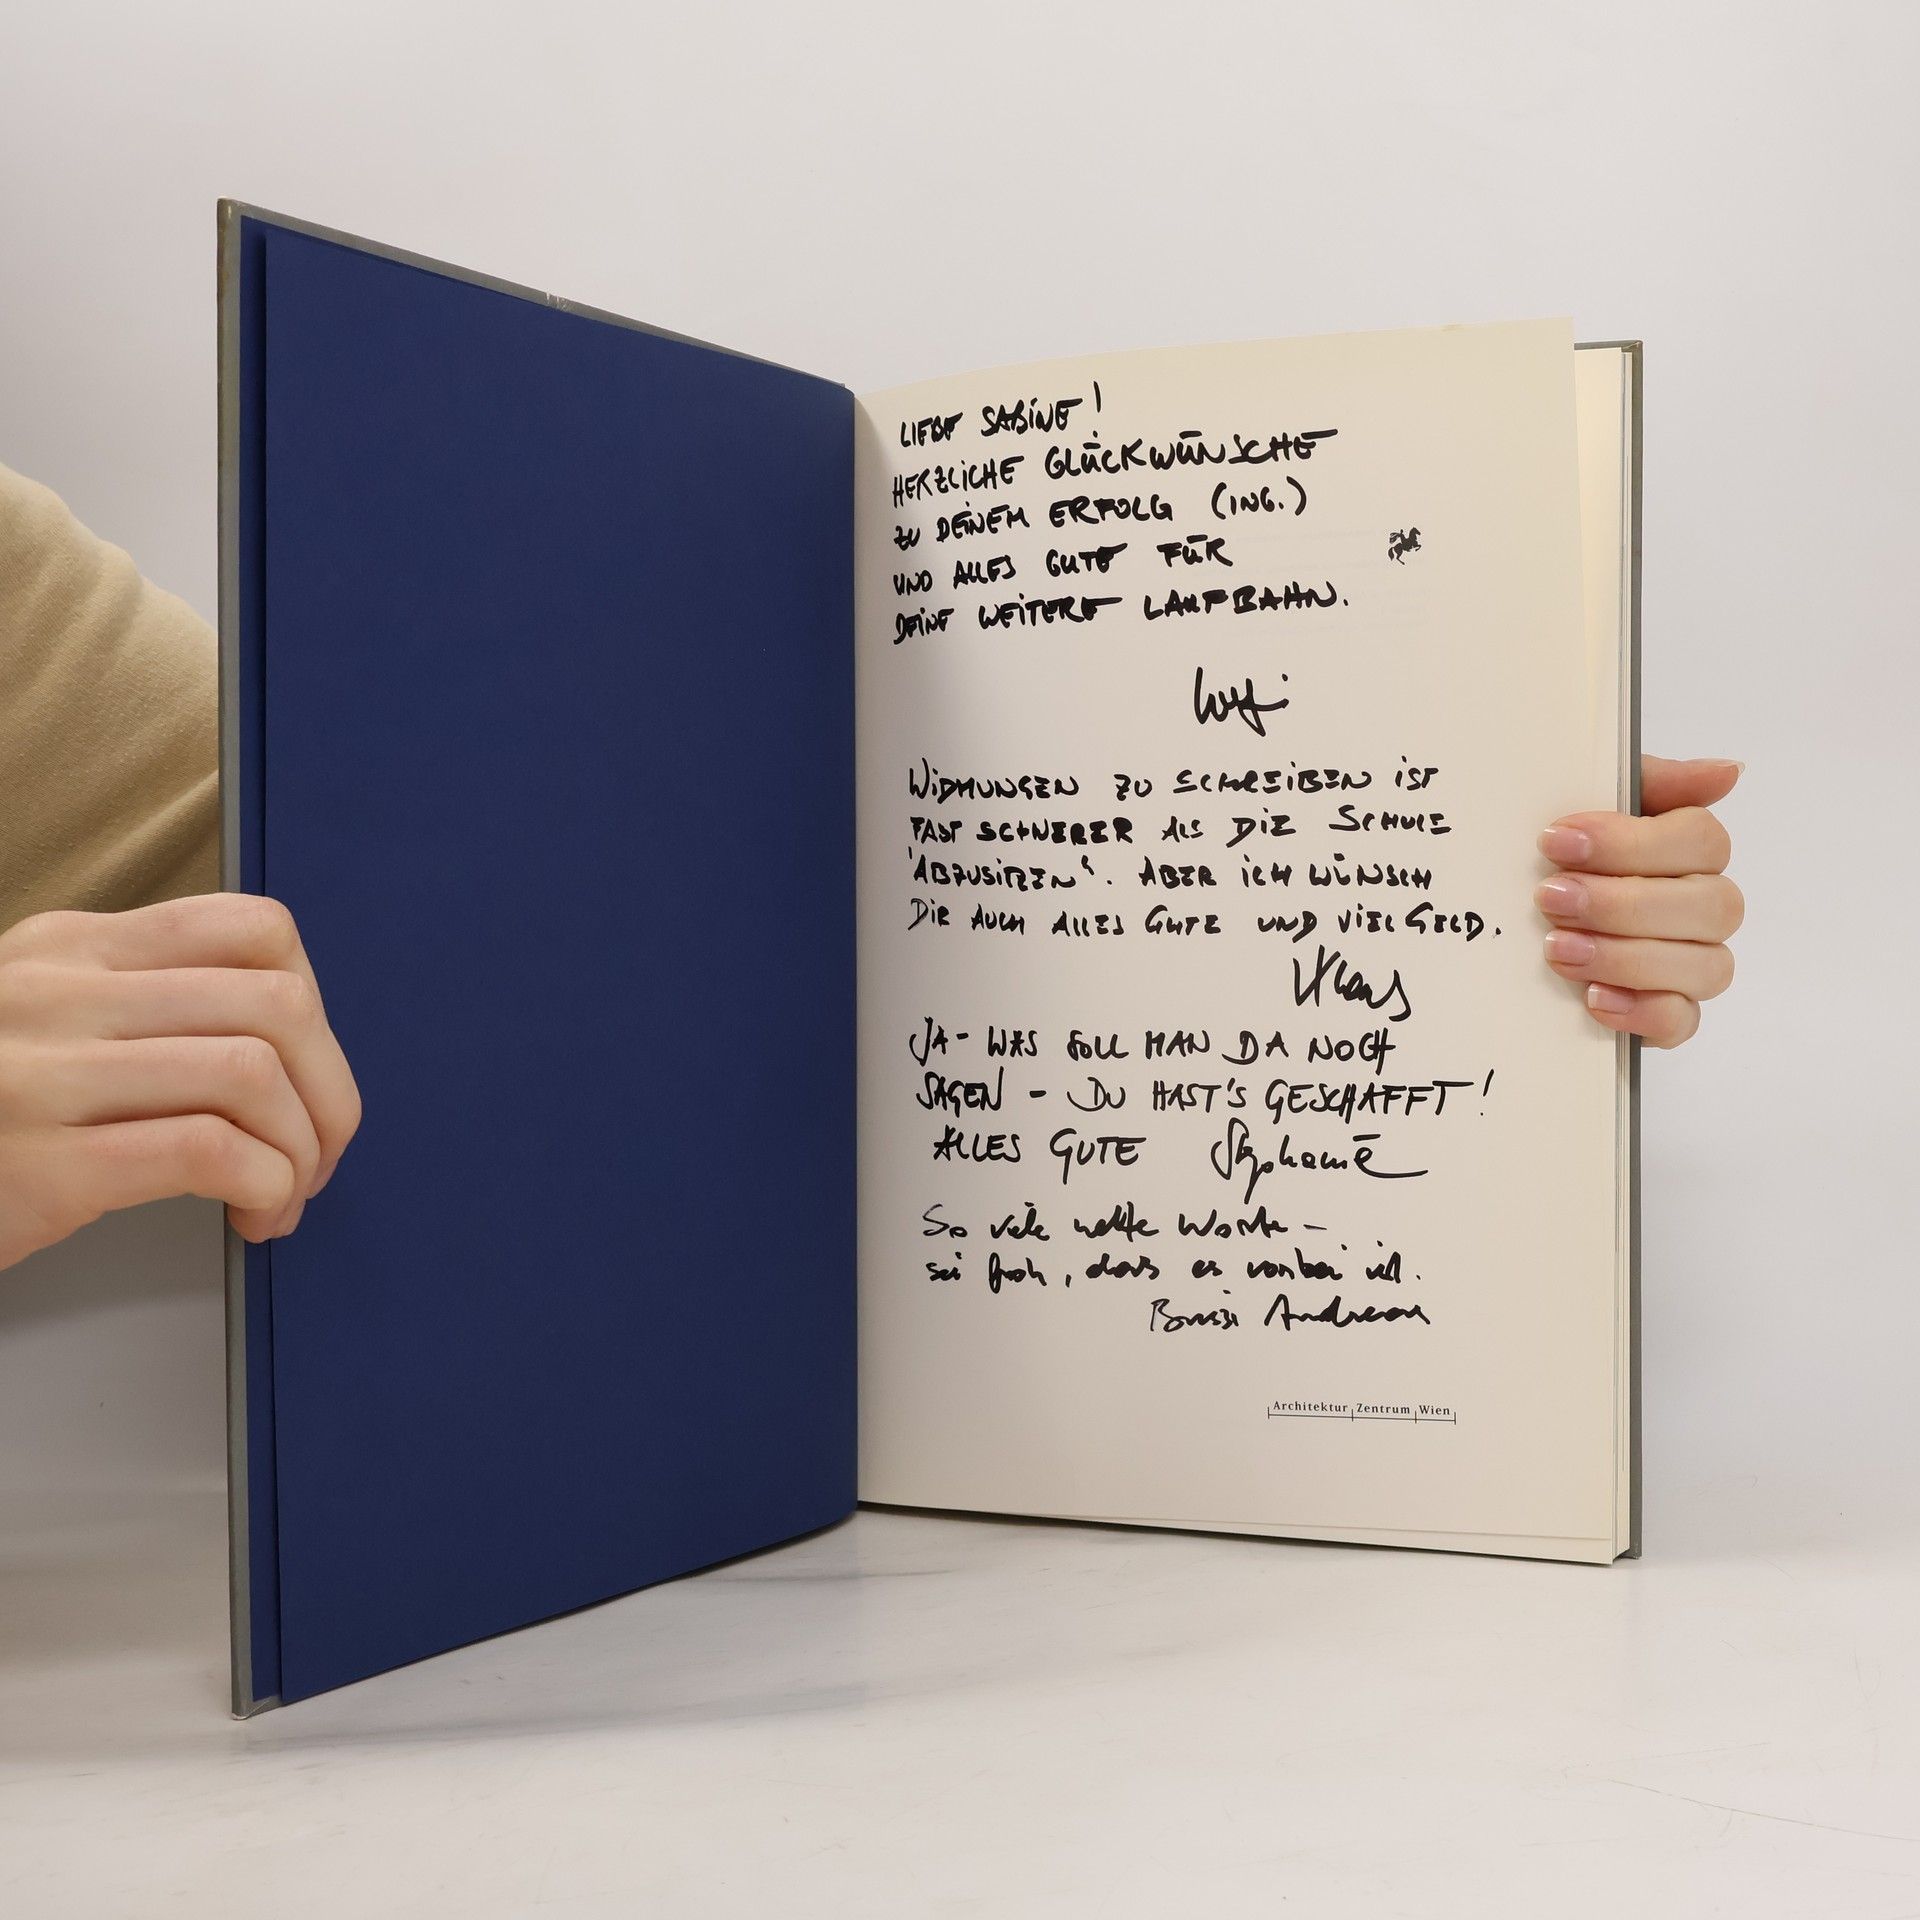 LIEBE SABINE!
HERZLICHE GLÜCKWÜNSCHE
ZU DEINEM ERFOLG (ING.)
UND ALLES GUTE FÜR
DEINE WEITERE LAUFBAHN.
WIDMUNGEN ZU SCHREIBEN IST
FAST SCHWERER ALS DIE SCHULE
"ABZUSITZEN". ABER ICH WÜNSCH
DIR AUCH ALLES GUTE UND VIEL GELD.
Klaus
JA - WAS SOLL MAN DA NOCH
SAGEN - DU HAST'S GESCHAFFT!
ALLES GUTE Stephanie
So viele nette Worte -
sei froh, dass es vorbei ist.
Bussi Andreas
Architektur Zentrum Wien